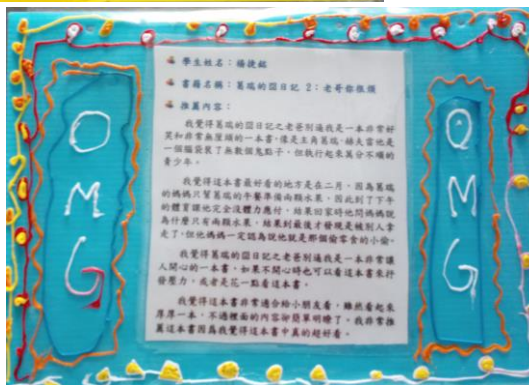 OMG
學生姓名：楊捷銘
書籍名稱：葛瑞的囧日記 2：老哥你很煩
推薦內容：
我覺得葛瑞的囧日記之老爸別逼我是一本非常好
笑和非常無厘頭的一本書，像是主角葛瑞·赫夫當他是
一個腦袋裝了無數個鬼點子，但執行起來萬分不順的
青少年。
我覺得這本書最好看的地方是在二月，因為葛瑞
的媽媽只幫葛瑞的午餐準備兩顆水果，因此到了下午
的體育課他完全沒體力應付，結果回家時他問媽媽說
為什麼只有兩顆水果，結果到最後才發現是被別人拿
走了，但他媽媽一定認為說他就是那個偷零食的小偷。
我覺得葛瑞的囧日記之老爸別逼我是一本非常讓
人開心的一本書，如果不開心時也可以看這本書來抒
發壓力，或者是花一點看這本書。
我覺得這本書非常適合給小朋友看，雖然看起來
厚厚一本，不過裡面的內容卻簡單明瞭了。我非常推
薦這本書因為我覺得這本書中真的超好看。
OMG